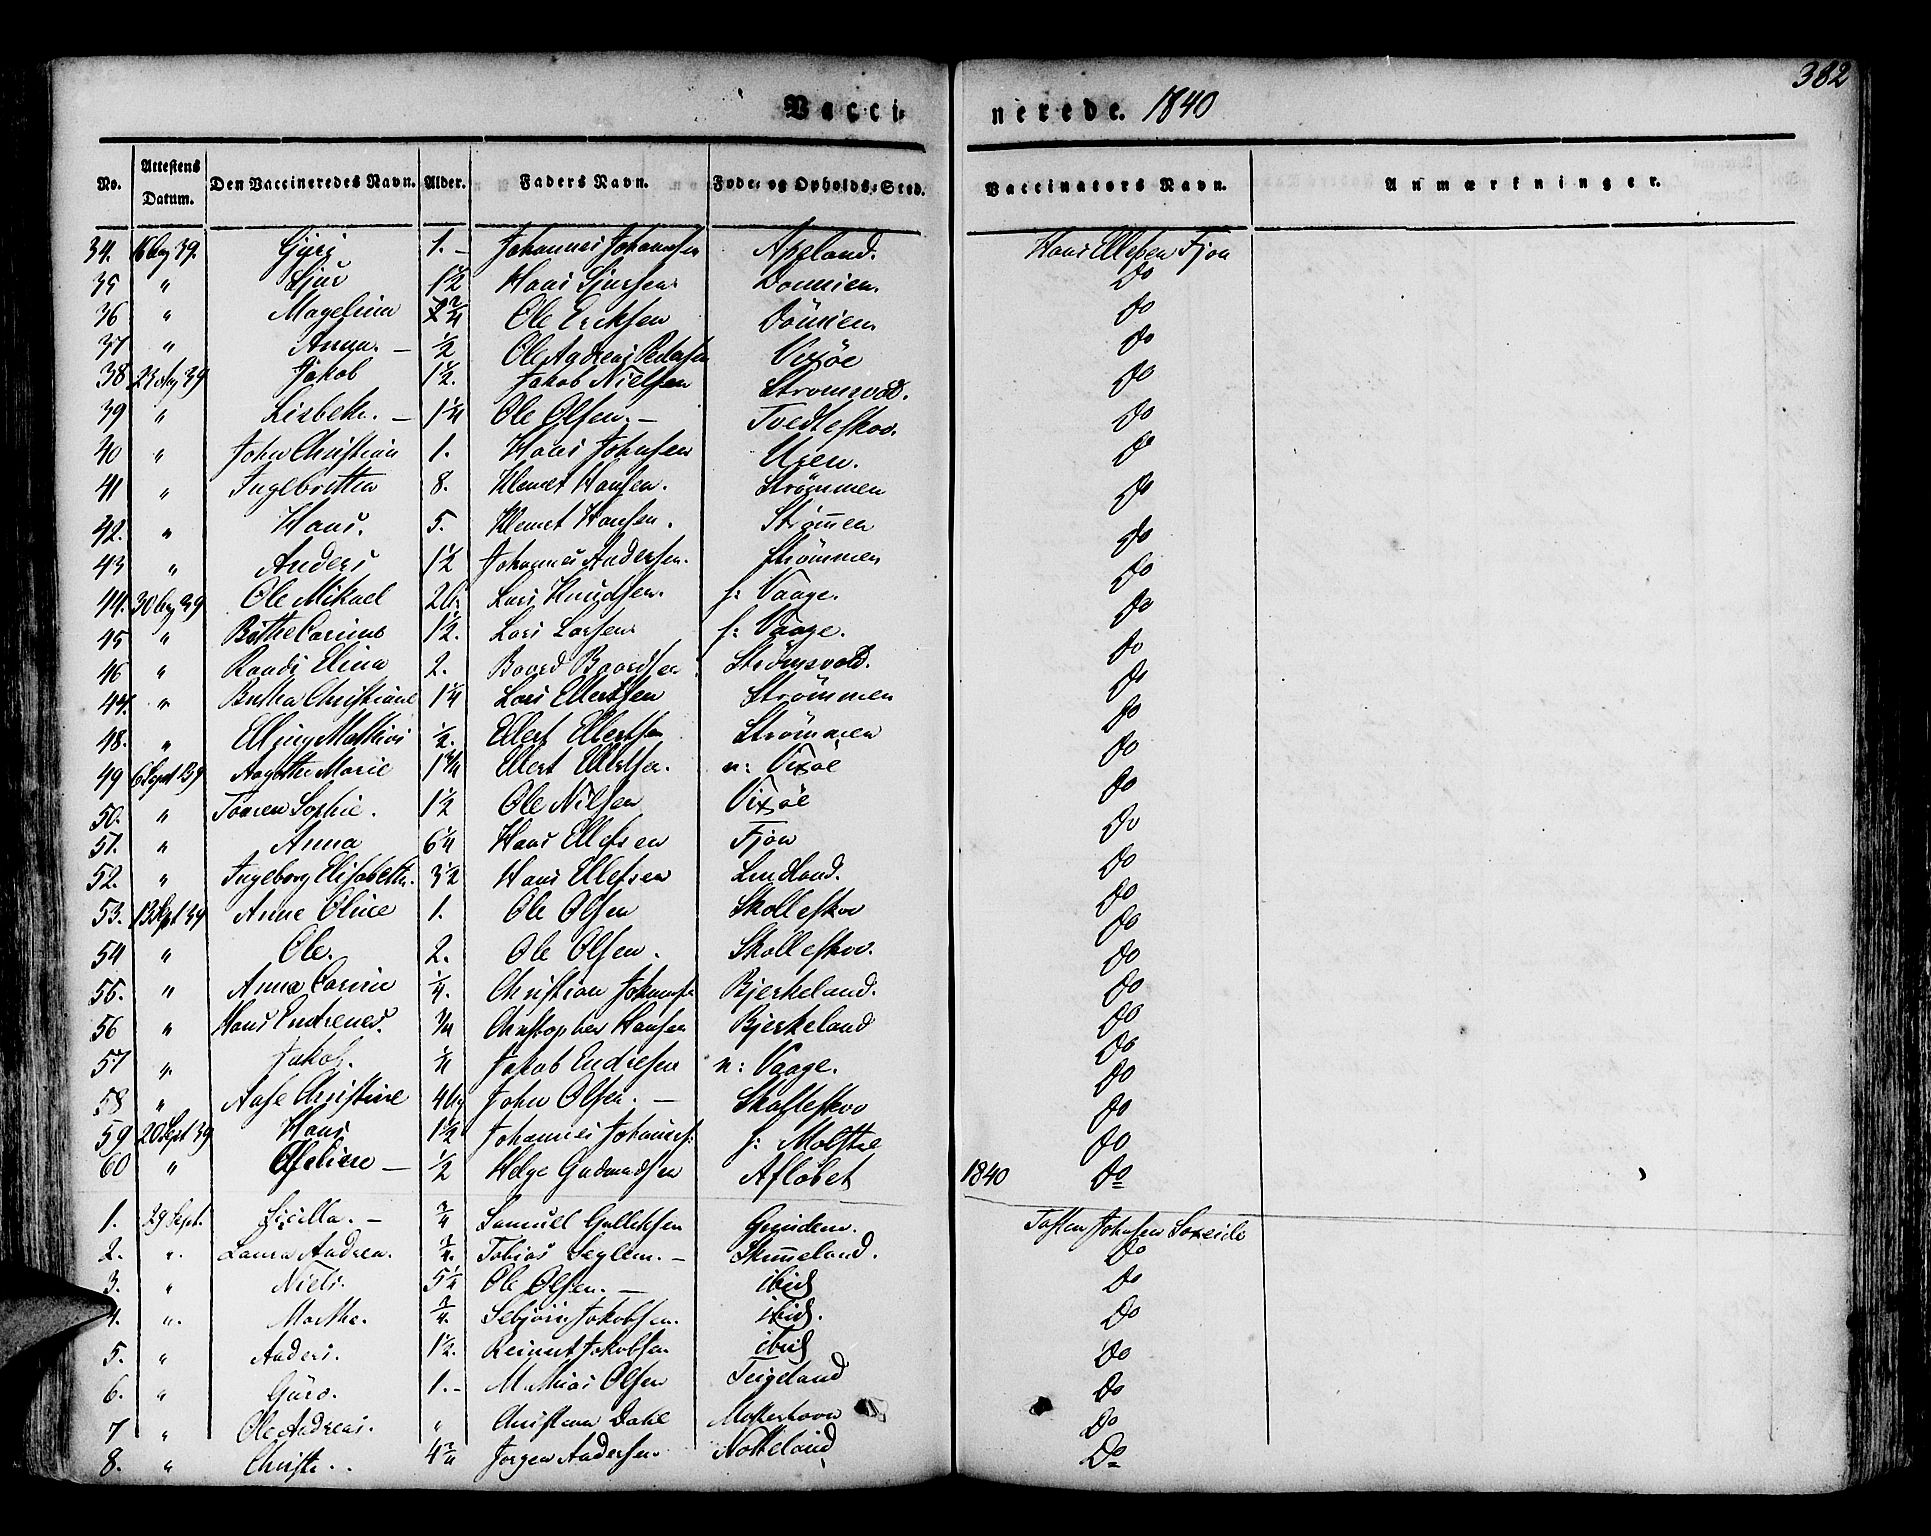 382
Vacci- nerede. 1840
No. Attestens Datum. Den Vaccineredes Navn. Alder. Faders Navn. Føde- og Opholds-Sted. Vaccinators Navn. Anmærkninger.
34. 16 Aug 39. 1. - Johannes Johannesen Apeland. Hans Ellefsen Fjon
35 " Sjur 1½ Hans Sjursen Do
36 " Magelina Ole Ericksen Dómien Do
37 " Anna. - ½ Ole Andreas Pedersen Vixøe Do
38 23 Aug 39 Jakob 1½. Jakob Nielsen Strømsvold. Do
39 " Lisbeth. - 1¼ Ole Olsen. - Tvedteskov. Do
40 " John Christian 1. Hans Johnsen Uren. Do
41 " Ingebretha 8. Klemet Hansen. Strømmen Do
42. " Hans. 5. Klemet Hansen. Strømen Do
43 " Anders 1½ Johannes Andersen. Strømmen Do
44. 30 Aug 39 Ole Mikael Lars Knudsen. f: Vaage. Do
45 " Berthe Carine 1½. Lars Larsen f: Vaage. Do
46 " Raadi Elina 2. Baard Baardsen Strømsvold. Do
47. " Bertha Christiane 1¼ Lars Ellertsen Strömmen Do
48. " Elling Mathias ½. Ellert Ellertsen Strømmen Do
49 6 Sept 39 Aagothe Marie 1¾ Ellert Ellertsen. n: Vixøe Do
50. " Taaren Sophie. 1½ Ole Nilsen Vixøe Do
51. " Anna 6¼ Hans Ellefsen Fjon Do
52. " Ingeborg Elisabeth. 3½ Hans Ellefsen Lindland. Do
53. 13 Sept 39 Anne Oline 1. Ole Olsen Skolleskov Do
54 " Ole. 2. Ole Olsen. Skolleskov. Do
55. " Anna Carine ¼. Christian Johannesen Bjerkeland. Do
56 " Hans Endreas. ¾ Christopher Hansen Bjerkeland Do
57 " Jakob. ¼ Jakob Endresen n: Vaage. Do
58 " Aase Christine John Olsen. - Skolleskov Do
59 20 Sept 39 Hans 1½ Johannes Johannes: f: Do
60 " - ½ Helge Gudmundsen Afløbet 1840 Do
1. 29 Sept. Sicilla. - ¾ Samuel Gulleksen Grinden. Tosten Johnsen Søreide
2. " Laura Andrea. ¾. Tobias Seglem. - Skimeland. Do
3. " Niels. 5¼ Ole Olsen. - ibid Do
4. " Marthe. ¾. Sebjörn Jakobsen. ibid. Do
5. " Anders. 1½. Reinert Jakobsen ibid Do
6. " Guro. 1. - Mathias Olsen Teigeland Do
7 " Ole Andreas. " Christian Dahl Do
8. " Christi. 4¾ Jørgen Andersen. Notteland Do